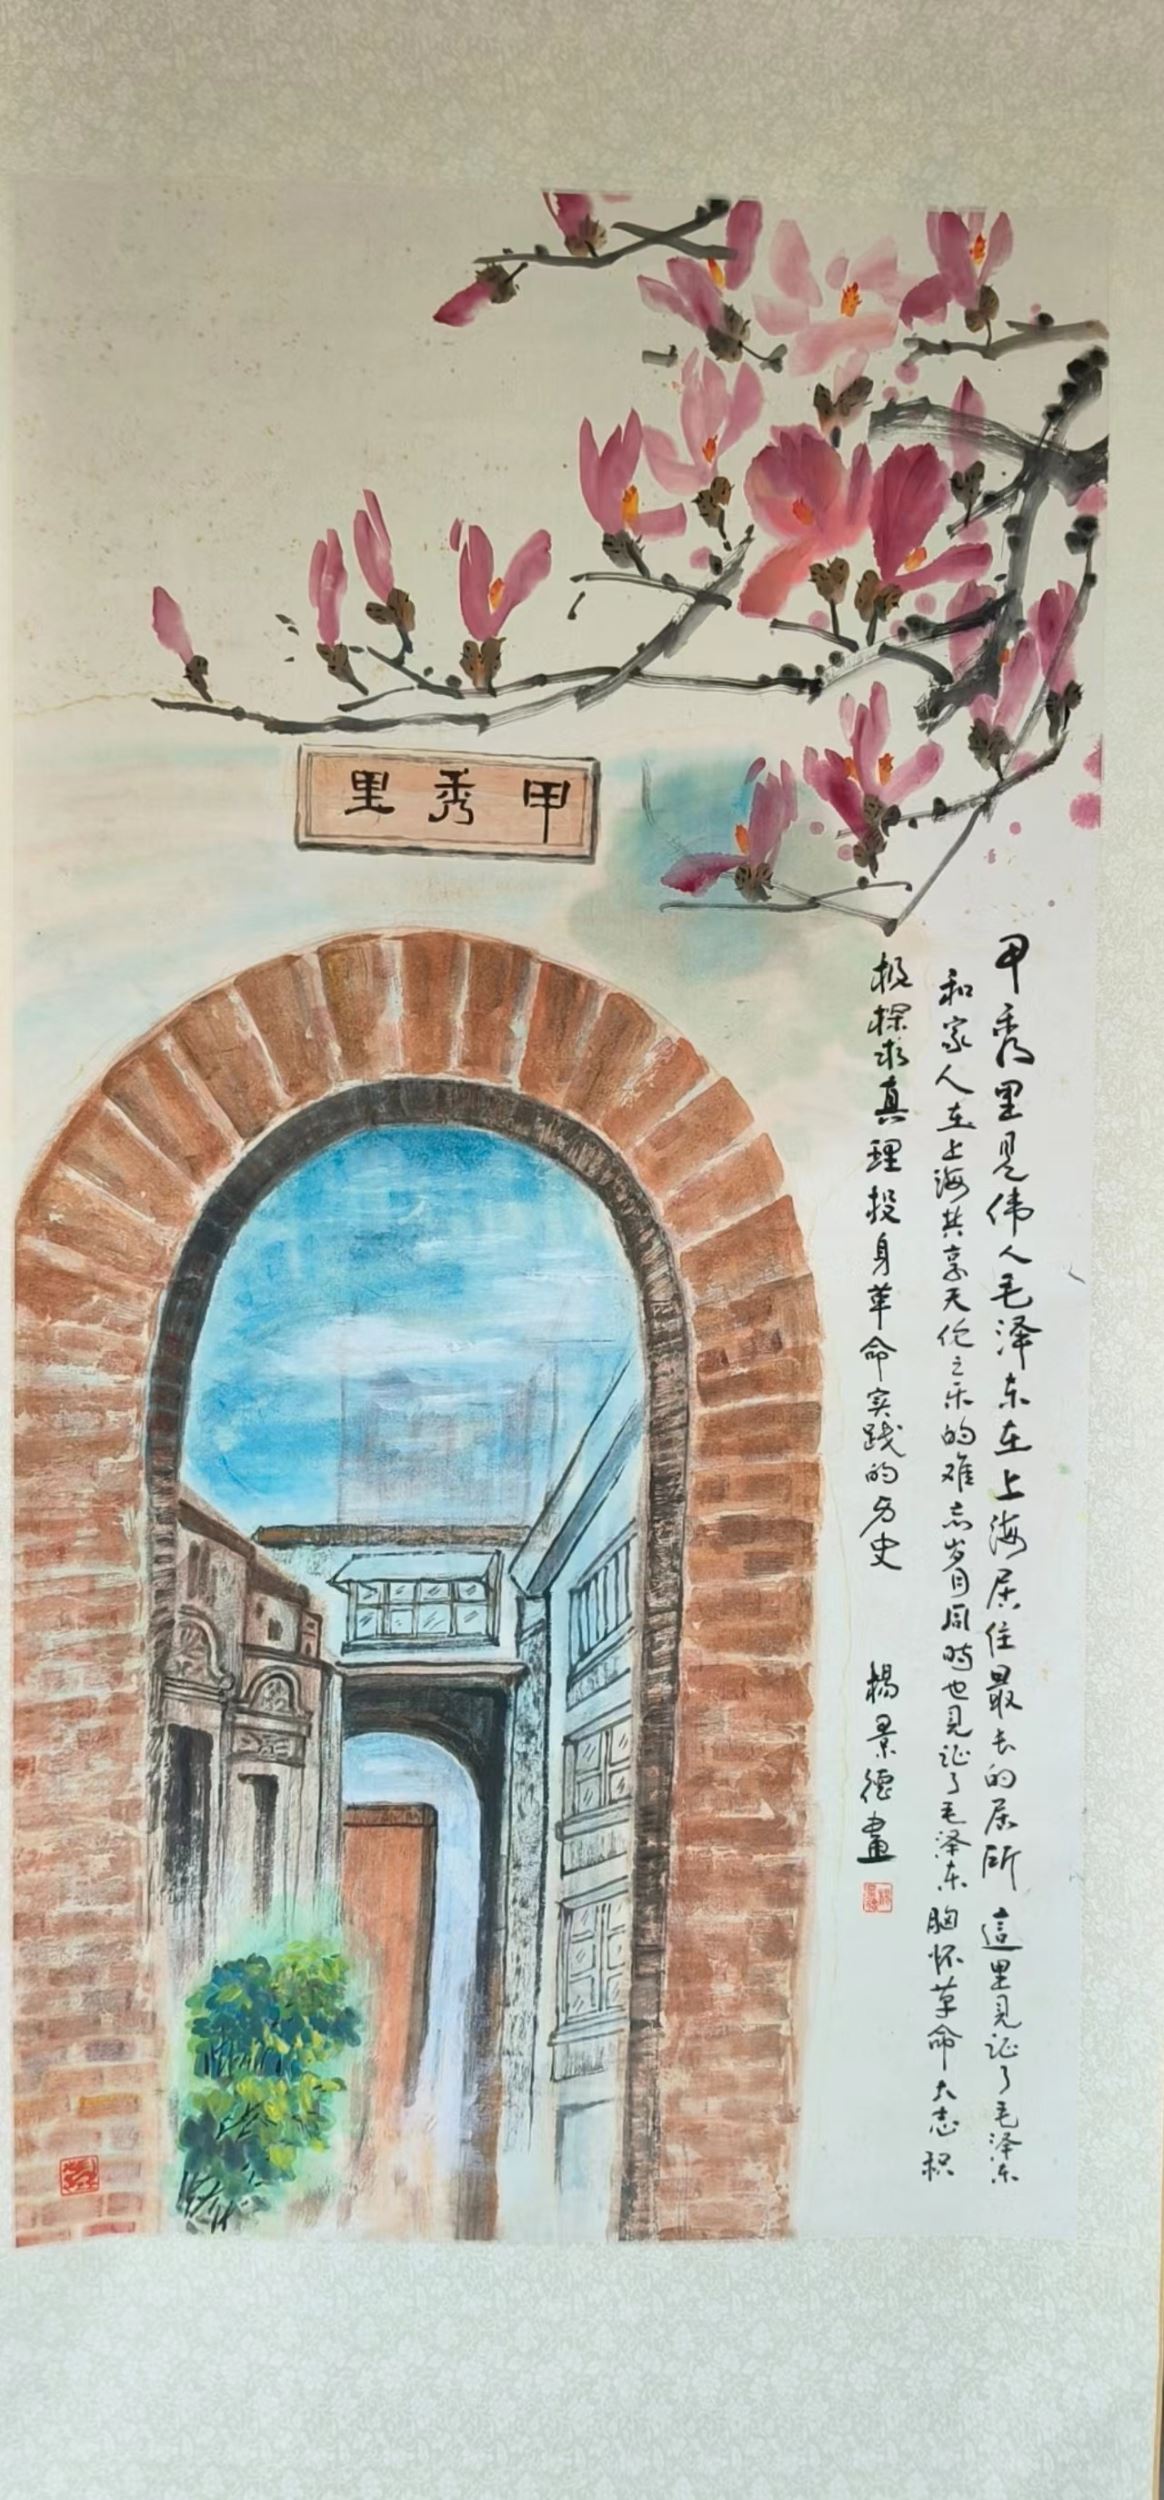 甲秀里
甲秀里是伟人毛泽东在上海居住最长的居所 這里见证了毛泽东
和家人在上海共享天伦之乐的难忘岁月同時也见证了毛泽东胸怀革命大志积
极探求真理投身革命实践的历史
楊景德畫